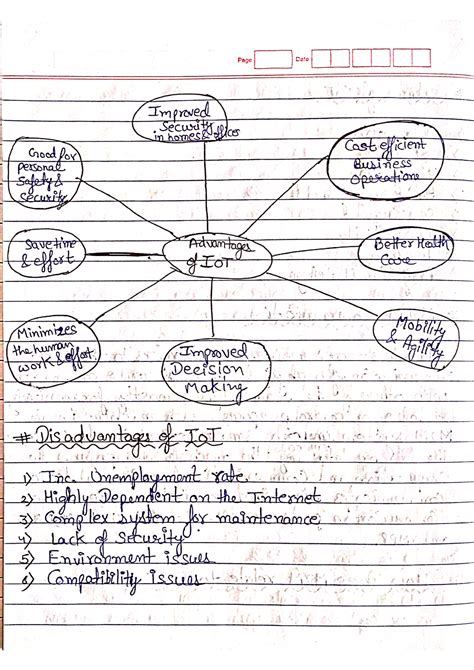 Page
Date
Improved
Security
in homes & offices
Good for
personal
Safety &
Security
Cost efficient
Business
Operations
Save time
& effort
Advantages
of IoT
Better Health
Care
Minimizes
the human
work & effort.
Improved
Decision
Making
Mobility
& Agility
# Disadvantages of IoT
1) Inc. Unemployment rate
2) Highly Dependent on the Internet
3) Complex system for maintenance
4) Lack of Security
5) Environment issues
6) Compatibility issues